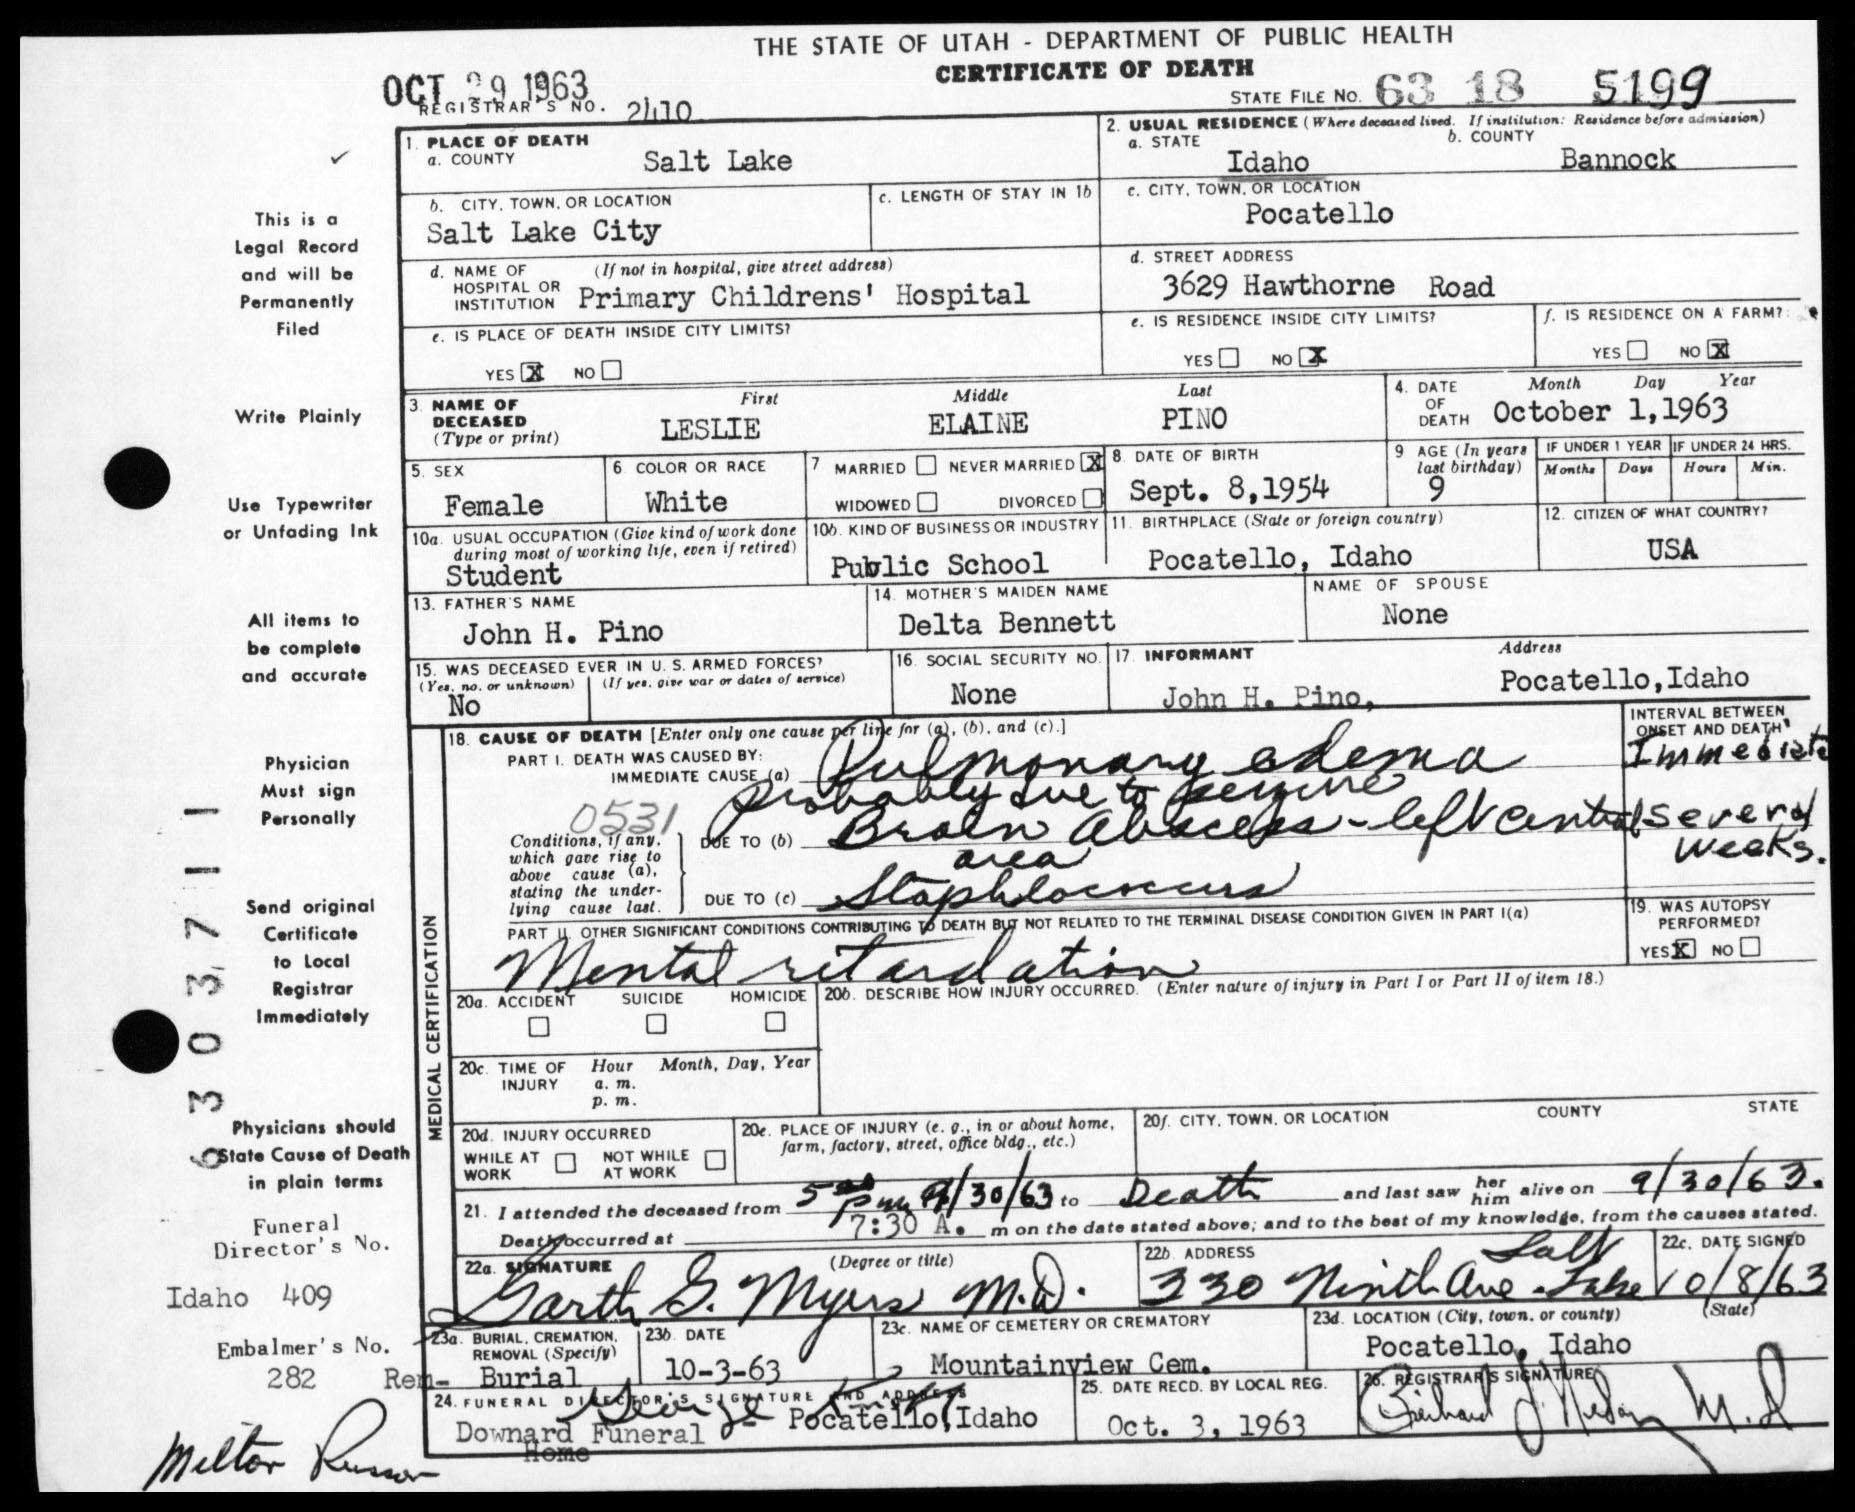 THE STATE OF UTAH - DEPARTMENT OF PUBLIC HEALTH
CERTIFICATE OF DEATH
OCT 29 1963
REGISTRAR'S NO. 2410
STATE FILE NO. 63 18 5199
1. PLACE OF DEATH
a. COUNTY Salt Lake
2. USUAL RESIDENCE (Where deceased lived. If institution: Residence before admission)
a. STATE Idaho
b. COUNTY Bannock
b. CITY, TOWN, OR LOCATION
Salt Lake City
c. LENGTH OF STAY IN 1b
c. CITY, TOWN, OR LOCATION
Pocatello
d. NAME OF HOSPITAL OR INSTITUTION (If not in hospital, give street address)
Primary Childrens' Hospital
d. STREET ADDRESS
3629 Hawthorne Road
e. IS PLACE OF DEATH INSIDE CITY LIMITS?
YES X NO
e. IS RESIDENCE INSIDE CITY LIMITS?
YES NO X
f. IS RESIDENCE ON A FARM?
YES NO X
3. NAME OF DECEASED (Type or print)
First Middle Last
LESLIE ELAINE PINO
4. DATE OF DEATH
Month Day Year
October 1,1963
5. SEX
Female
6. COLOR OR RACE
White
7. MARRIED NEVER MARRIED X
WIDOWED DIVORCED
8. DATE OF BIRTH
Sept. 8,1954
9. AGE (In years last birthday)
9
IF UNDER 1 YEAR
Months Days
IF UNDER 24 HRS.
Hours Min.
10a. USUAL OCCUPATION (Give kind of work done during most of working life, even if retired)
Student
10b. KIND OF BUSINESS OR INDUSTRY
Public School
11. BIRTHPLACE (State or foreign country)
Pocatello, Idaho
12. CITIZEN OF WHAT COUNTRY?
USA
13. FATHER'S NAME
John H. Pino
14. MOTHER'S MAIDEN NAME
Delta Bennett
NAME OF SPOUSE
None
15. WAS DECEASED EVER IN U. S. ARMED FORCES?
(Yes, no, or unknown) (If yes, give war or dates of service)
No
16. SOCIAL SECURITY NO.
None
17. INFORMANT Address
John H. Pino, Pocatello,Idaho
MEDICAL CERTIFICATION
18. CAUSE OF DEATH [Enter only one cause per line for (a), (b), and (c).]
INTERVAL BETWEEN ONSET AND DEATH
PART I. DEATH WAS CAUSED BY:
IMMEDIATE CAUSE (a) Pulmonary edema
Immediate
probably due to seizure
0531
Conditions, if any, which gave rise to above cause (a), stating the underlying cause last.
DUE TO (b) Brain Abscess - left central area
Several weeks.
DUE TO (c) Staphlococcus
PART II. OTHER SIGNIFICANT CONDITIONS CONTRIBUTING TO DEATH BUT NOT RELATED TO THE TERMINAL DISEASE CONDITION GIVEN IN PART I(a)
Mental retardation
19. WAS AUTOPSY PERFORMED?
YES X NO
20a. ACCIDENT SUICIDE HOMICIDE
20b. DESCRIBE HOW INJURY OCCURRED. (Enter nature of injury in Part I or Part II of item 18.)
20c. TIME OF INJURY
Hour Month, Day, Year
a. m.
p. m.
20d. INJURY OCCURRED
WHILE AT WORK NOT WHILE AT WORK
20e. PLACE OF INJURY (e. g., in or about home, farm, factory, street, office bldg., etc.)
20f. CITY, TOWN, OR LOCATION COUNTY STATE
21. I attended the deceased from 5 00 pm 9/30/63 to Death and last saw her him alive on 9/30/63.
Death occurred at 7:30 A. m on the date stated above; and to the best of my knowledge, from the causes stated.
22a. SIGNATURE (Degree or title)
Garth G. Myers M.D.
22b. ADDRESS
330 Ninth Ave. Salt Lake
22c. DATE SIGNED
10/8/63
23a. BURIAL, CREMATION, REMOVAL (Specify)
Rem- Burial
23b. DATE
10-3-63
23c. NAME OF CEMETERY OR CREMATORY
Mountainview Cem.
23d. LOCATION (City, town, or county) (State)
Pocatello, Idaho
24. FUNERAL DIRECTOR'S SIGNATURE AND ADDRESS
George
Downard Funeral Home - Pocatello,Idaho
25. DATE RECD. BY LOCAL REG.
Oct. 3, 1963
26. REGISTRAR'S SIGNATURE
M.D
This is a
Legal Record
and will be
Permanently
Filed
Write Plainly
Use Typewriter
or Unfading Ink
All items to
be complete
and accurate
Physician
Must sign
Personally
Send original
Certificate
to Local
Registrar
Immediately
Physicians should
State Cause of Death
in plain terms
Funeral
Director's No.
Idaho 409
Embalmer's No.
282
Milton
6303711